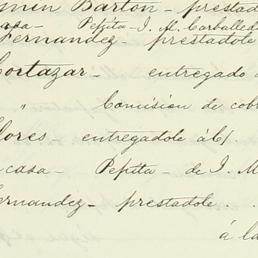 min Barton - prestado
casa - Pepita - J. M. Carballeda
Fernandez - prestadole
Cortazar - entregado
" Comision de cobr
lores entregadole á
casa - Pepita - de J. M
ernandez - prestadole . .
á la